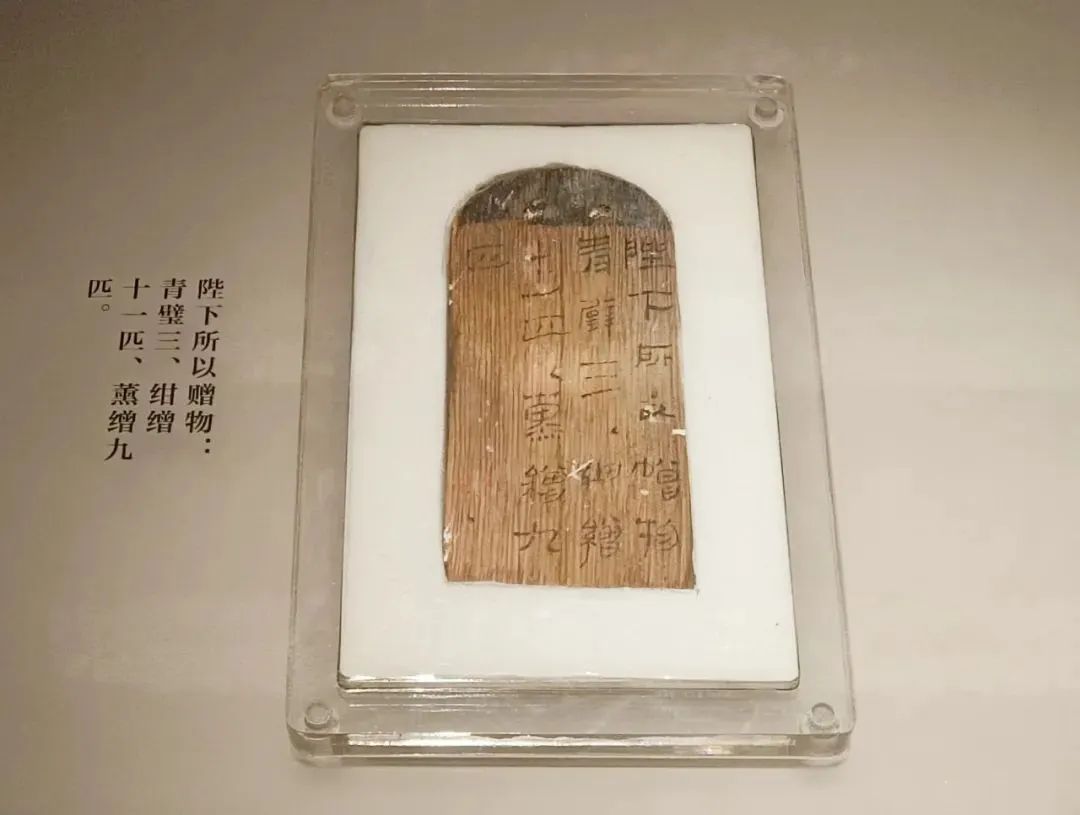 陛下所以赠物：
青璧三、绀缯
十一匹、薰缯九
匹。
陛下所以赠物
青璧三、绀缯
十一匹、薰缯九
匹